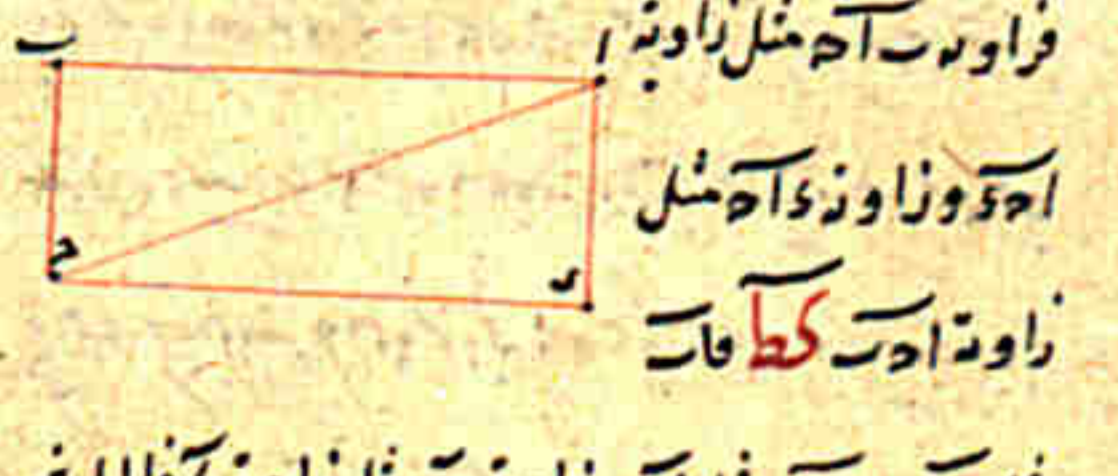 ب
ا
ح
د
فزاوية ب ا ح مثل زاوية
ا ح د وزاوية د ا ح مثل
زاوية ا ح ب كط فاب